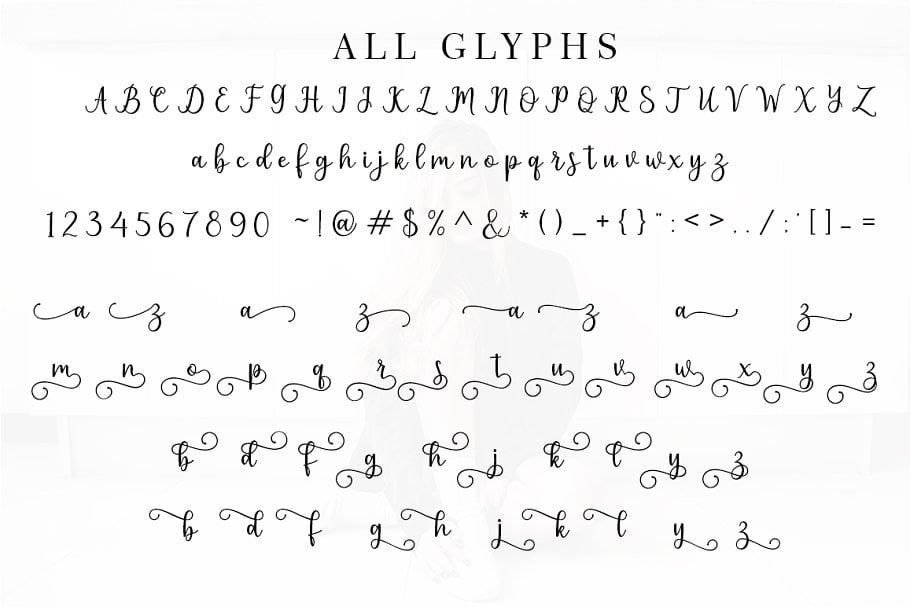 ALL GLYPHS
A B C D E F G H I J K L M N O P Q R S T U V W X Y Z
a b c d e f g h i j k l m n o p q r s t u v w x y z
1 2 3 4 5 6 7 8 9 0 ~ ! @ # $ % ^ & * ( ) _ + { } " : < > . . / ; ' [ ] - =
a z a z a z a z
m n o p q r s t u v w x y z
b d f g h j k l y z
b d f g h j k l y z